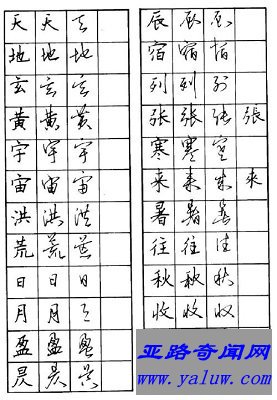 天 天 天
地 地 地
玄 玄 玄
黄 黄 黄
宇 宇 宇
宙 宙 宙
洪 洪 洪
荒 荒 荒
日 日 日
月 月 月
盈 盈 盈
昃 昃 昃
辰 辰 辰
宿 宿 宿
列 列 列
张 张 张 张
寒 寒 寒
来 来 来 来
暑 暑 暑
往 往 往
秋 秋 秋
收 收 收
亚路奇闻网
www.yaluw.com